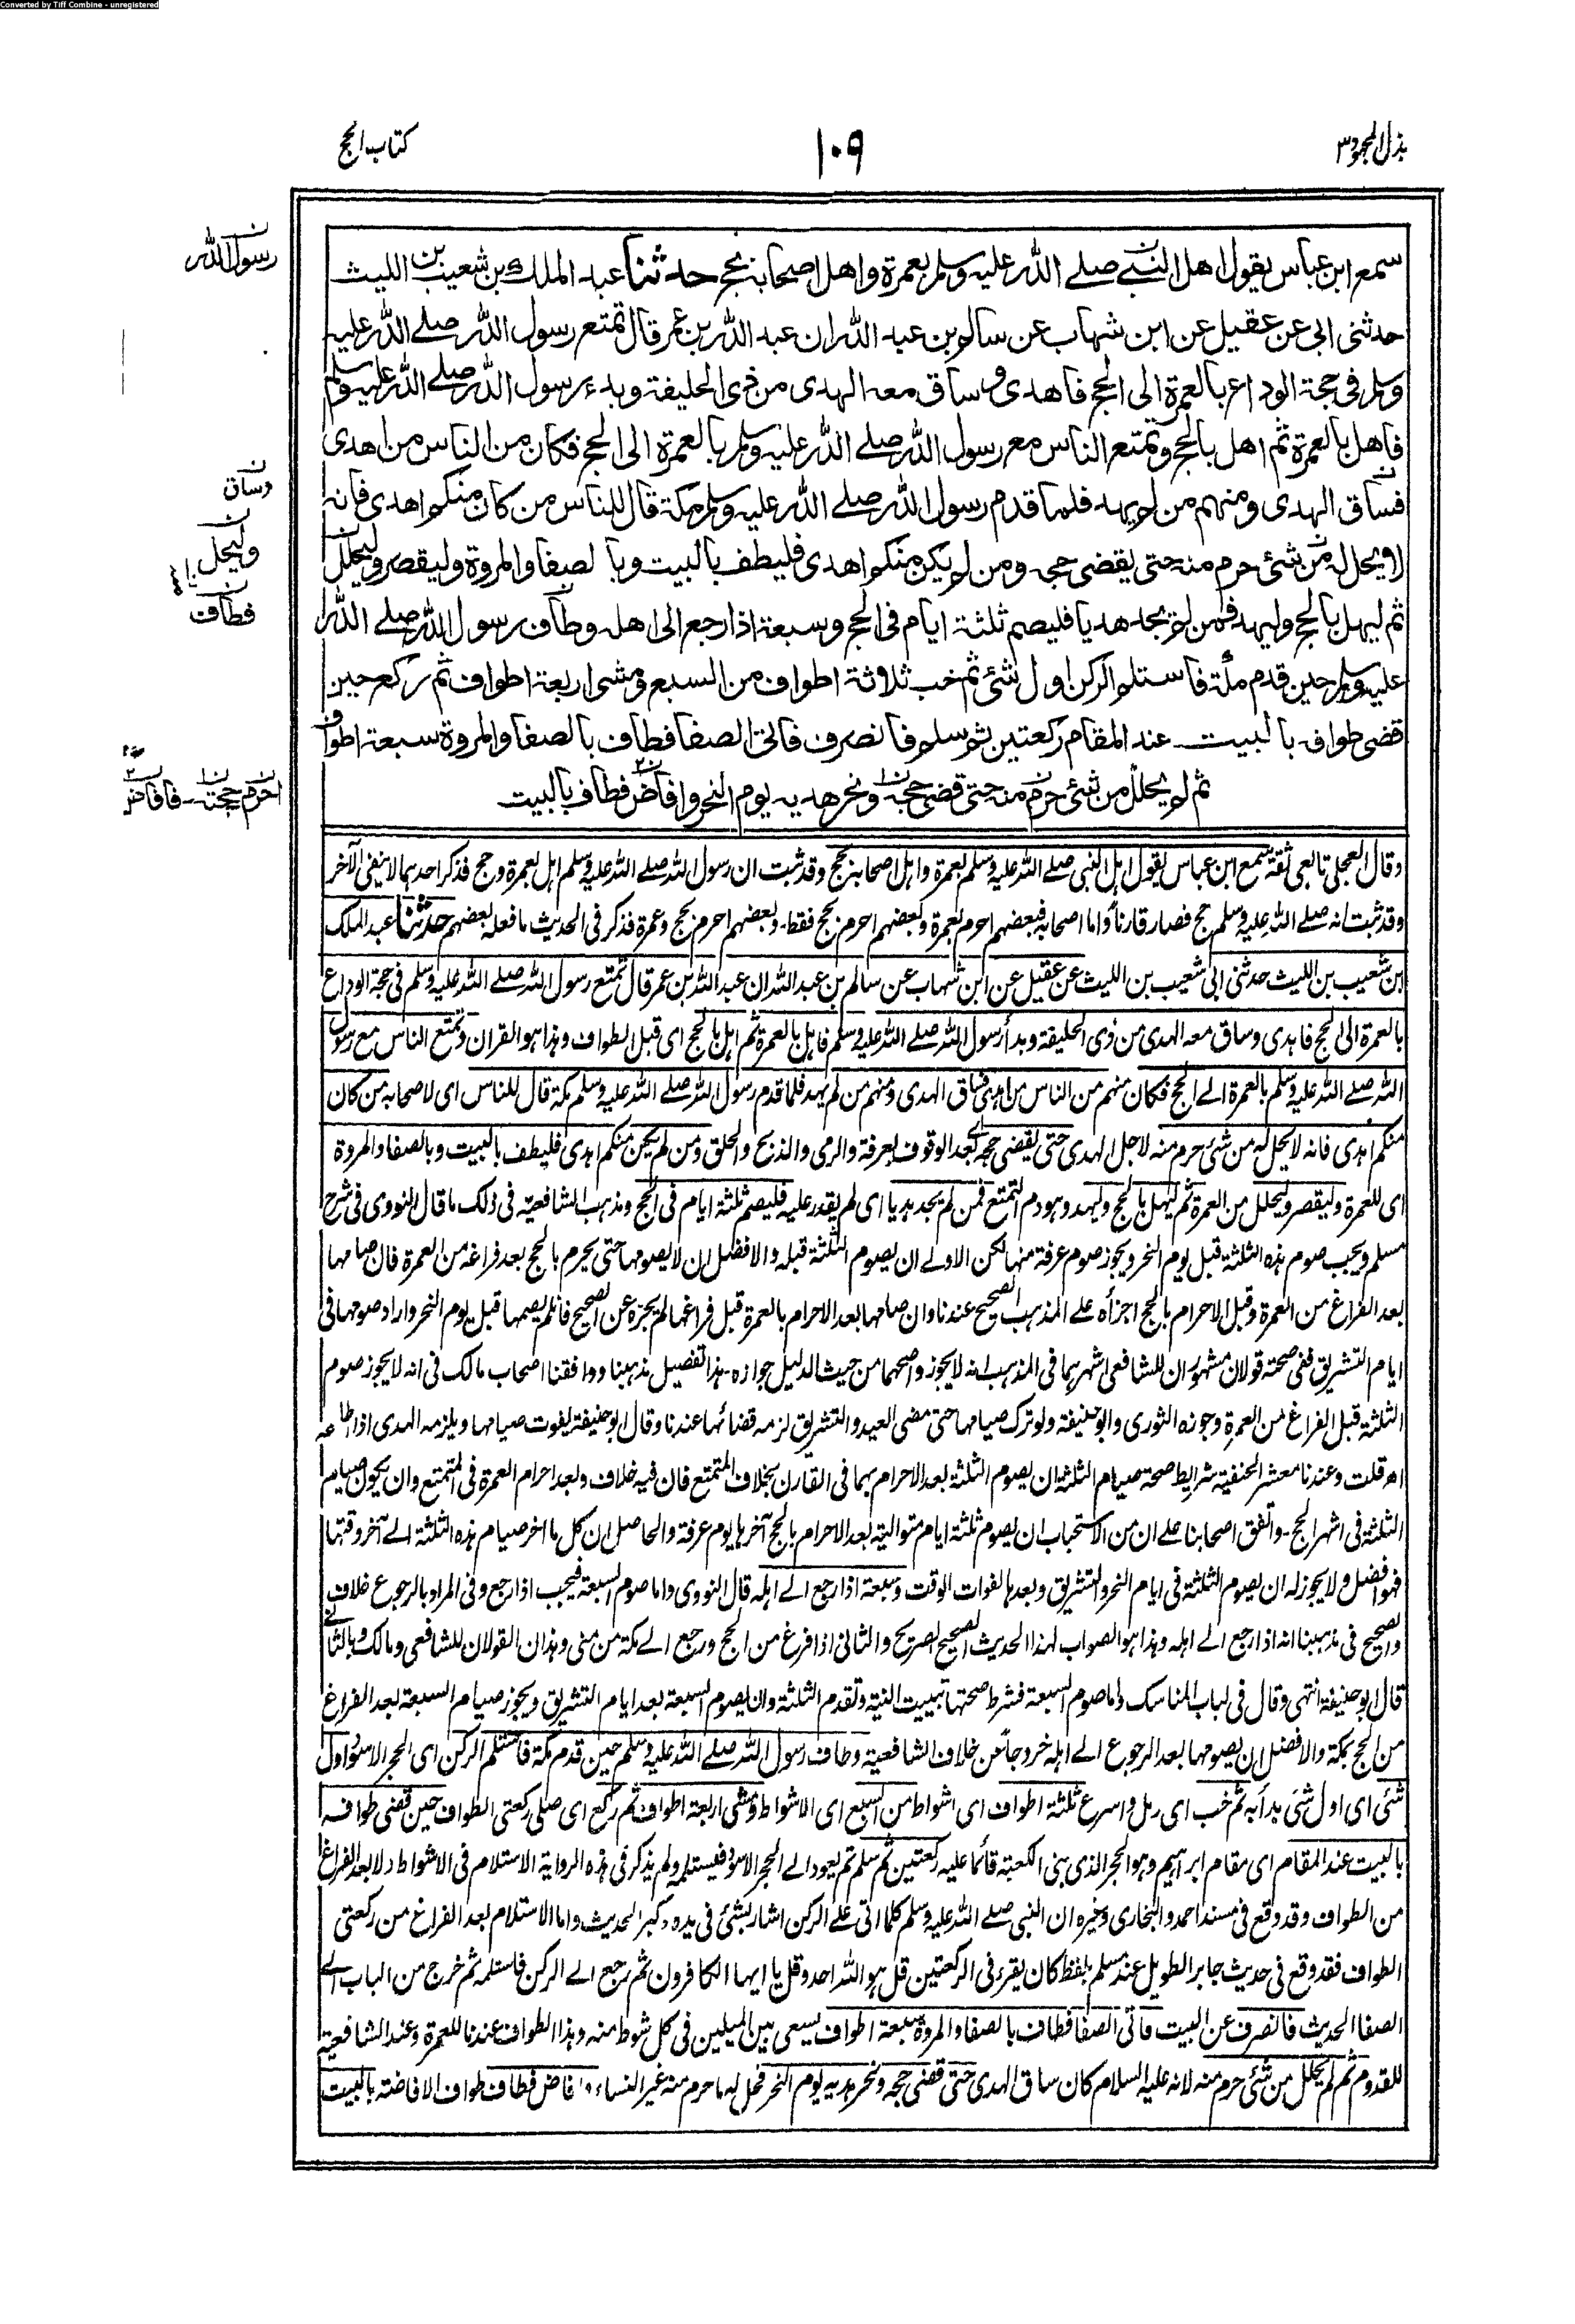 Converted by Tiff Combine - unregistered
بذل المجہود ٣
١٠٩
كتاب الحج
سمع ابن عباس يقول اهل النبي صلے الله عليه وسلم بعمرة واهل اصحابه بحج حدثنا عبد الملك بن شعيب بن الليث
حدثنى ابى عن عقيل عن ابن شهاب عن سالم بن عبد الله ان عبد الله بن عمر قال تمتع رسول الله صلے الله عليه
وسلم فى حجة الوداع بالعمرة الى الحج فاهدى وساق معه الهدى من ذى الحليفة وبدء رسول الله صلے الله عليه وسلم
فاهل بالعمرة ثم اهل بالحج وتمتع الناس مع رسول الله صلے الله عليه وسلم بالعمرة الى الحج فكان من الناس من اهدى
فساق الهدى ومنهم من لم يهد فلما قدم رسول الله صلے الله عليه وسلم مكة قال للناس من كان منكم اهدى فانه
لا يحل له من شئ حرم منه حتى يقضى حجه ومن لم يكن منكم اهدى فليطف بالبيت وبالصفا والمروة وليقصر وليحلل
ثم ليهل بالحج وليهد فمن لم يجد هديا فليصم ثلثة ايام فى الحج وسبعة اذا رجع الى اهله وطاف رسول الله صلے الله
عليه وسلم حين قدم مكة فاستلم الركن اول شئ ثم خب ثلاثة اطواف من السبع ومشى اربعة اطواف ثم ركع حين
قضى طوافه بالبيت عند المقام ركعتين ثم سلم فانصرف فاتى الصفا فطاف بالصفا والمروة سبعة اطواف
ثم لم يحلل من شئ حرم منه حتى قضى حجه ونحر هديه يوم النحر وافاض فطاف بالبيت
رسول الله
وساق
وليحل
فطاف
احرم حجته - فافاض
وقال العجلى تابعى ثقة سمع ابن عباس يقول اہل النبى صلے الله عليه وسلم بعمرة واہل اصحابه بحج وقد ثبت ان رسول الله صلے الله عليه وسلم اہل بعمرة وحج فذكر احدہما لا ينفى الآخر
وقد ثبت انه صلے الله عليه وسلم حج فصار قارنا واما اصحابه فبعضہم احرم بعمرة وبعضہم احرم بحج فقط - وبعضہم احرم بحج وعمرة فذكر فى الحديث ما فعله بعضہم حدثنا عبد الملك
ابن شعيب بن الليث حدثنى ابى شعيب بن الليث عن عقيل عن ابن شہاب عن سالم بن عبد الله ان عبد الله بن عمر قال تمتع رسول الله صلے الله عليه وسلم فى حجة الوداع
بالعمرة الى الحج فاہدى وساق معه الہدى من ذى الحليفة وبدأ رسول الله صلے الله عليه وسلم فاہل بالعمرة ثم اہل بالحج اى قبل الطواف وہذا ہو القران وتمتع الناس مع رسول
الله صلے الله عليه وسلم بالعمرة الے الحج فكان منہم من الناس من اہدى فساق الہدى ومنہم من لم يہد فلما قدم رسول الله صلے الله عليه وسلم مكة قال للناس اى لاصحابه من كان
منكم اہدى فانه لا يحل له من شئ حرم منه لاجل الہدى حتى يقضى حجه اے بعد الوقوف بعرفة والرمى والذبح والحلق ومن لم يكن منكم اہدى فليطف بالبيت وبالصفا والمروة
اى للعمرة وليقصر وليحلل من العمرة ثم ليہل بالحج وليہد وہو دم التمتع فمن لم يجد ہديا اى لم يقدر عليه فليصم ثلثة ايام فى الحج ومذہب الشافعية فى ذلك ما قال النووى فى شرح
مسلم ويجب صوم ہذه الثلثة قبل يوم النحر ويجوز صوم عرفة منہا لكن الاولے ان يصوم الثلثة قبله والافضل ان لا يصومہا حتى يحرم بالحج بعد فراغه من العمرة فان صامہا
بعد الفراغ من العمرة وقبل الاحرام بالحج اجزأه علے المذہب الصحيح عندنا وان صامہا بعد الاحرام بالعمرة قبل فراغہا لم يجزه عن الصحيح فان لم يصمہا قبل يوم النحر واراد صومہا فى
ايام التشريق ففى صحته قولان مشہوران للشافعى اشہرہما فى المذہب انه لا يجوز واصحہما من حيث الدليل جوازه - ہذا تفصيل مذہبنا ووافقنا اصحاب مالك فى انه لا يجوز صوم
الثلثة قبل الفراغ من العمرة وجوزه الثورى وابو حنيفة ولو ترك صيامہا حتى مضى العيد والتشريق لزمه قضائہا عندنا وقال ابو حنيفة يفوت صيامہا ويلزمه الہدى اذا استطاعه
اھ قلت وعندنا معشر الحنفية شرائط صحة صيام الثلثة ان يصوم الثلثة بعد الاحرام بہما فى القارن بخلاف المتمتع فان فيه خلاف وبعد احرام العمرة فى المتمتع وان يكون صيام
الثلثة فى اشہر الحج - واتفق اصحابنا علے ان من الاستحباب ان يصوم ثلثة ايام متوالية بعد الاحرام بالحج آخرہا يوم عرفة والحاصل ان كل ما اخر صيام ہذه الثلثة الے آخر وقتہا
فہو افضل ولا يجوز له ان يصوم الثلثة فى ايام النحر والتشريق وبعدہا لفوات الوقت وسبعة اذا رجع الے اہله قال النووى واما صوم السبعة فيجب اذا رجع وفى المراد بالرجوع خلاف
والصحيح فى مذہبنا انه اذا رجع الے اہله وہذا ہو الصواب لہذا الحديث الصحيح الصريح والثانى اذا فرغ من الحج ورجع الے مكة من منى وہذان القولان للشافعى ومالك وبالثانے
قال ابو حنيفة انتہى وقال فى لباب المناسك واما صوم السبعة فشرط صحتہا تبييت النية وتقدم الثلثة وان يصوم السبعة بعد ايام التشريق ويجوز صيام السبعة بعد الفراغ
من الحج بمكة والافضل ان يصومہا بعد الرجوع الے اہله خروجا عن خلاف الشافعية وطاف رسول الله صلے الله عليه وسلم حين قدم مكة فاستلم الركن اى الحجر الاسود اول
شئى اى اول شئى بدأ به ثم خب اى رمل واسرع ثلثة اطواف اى اشواط من السبع اى الاشواط ومشى اربعة اطواف ثم ركع اى صلى ركعتى الطواف حين قضى طوافه
بالبيت عند المقام اى مقام ابراہيم وہو الحجر الذى بنى الكعبة قائما عليه ركعتين ثم سلم ثم يعود الے الحجر الاسود فيستلمه ولم يذكر فى ہذه الرواية الاستلام فى الاشواط ولا بعد الفراغ
من الطواف وقد وقع فى مسند احمد والبخارى وغيره ان النبى صلے الله عليه وسلم كلما اتى علے الركن اشار بشئى فى يده وكبر الحديث واما الاستلام بعد الفراغ من ركعتى
الطواف فقد وقع فى حديث جابر الطويل عند مسلم بلفظ كان يقرء فى الركعتين قل ہو الله احد وقل يا ايہا الكافرون ثم رجع الے الركن فاستلمه ثم خرج من الباب الے
الصفا الحديث فانصرف عن البيت فاتى الصفا فطاف بالصفا والمروة سبعة اطواف يسعى بين الميلين فى كل شوط منه وہذا الطواف عندنا للعمرة وعند الشافعية
للقدوم ثم لم يحلل من شئى حرم منه لانه عليه السلام كان ساق الہدى حتى قضى حجه ونحر ہديه يوم النحر فحل له ما حرم منه غير النساء وافاض فطاف طواف الافاضة بالبيت